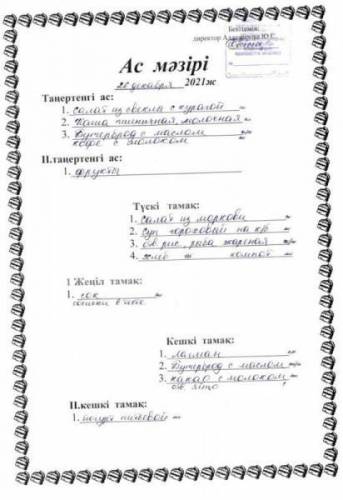 Бекітемін:
директор
Ас мәзірі
28 декабря 2021ж
Таңертеңгі ас:
1. салат из свеклы с курагой
2. Каша пшеничная, молочная
3. Бутерброд с маслом
кофе с молоком
II.таңертеңгі ас:
1. фрукты
Түскі тамақ:
1. салат из моркови
2. суп гороховый на к/б
3. отв. рис, рыба жареная
4. хлеб компот
1 Жеңіл тамақ:
1. сок
сосиски в тесте
Кешкі тамақ:
1. лагман
2. Бутерброд с маслом
3. какао с молоком
отв. яйцо
II.кешкі тамақ:
1. йогурт питьевой